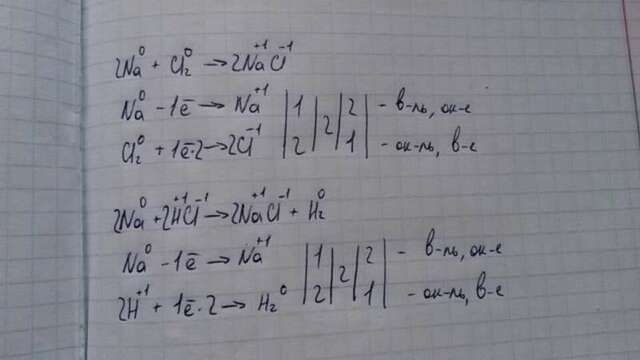 2Na⁰ + Cl₂⁰ → 2Na⁺¹Cl⁻¹
Na⁰ - 1ē → Na⁺¹ | 1 | 2 | 2 | - в-ль, ок-е
Cl₂⁰ + 1ē·2 → 2Cl⁻¹ | 2 | | 1 | - ок-ль, в-е
2Na⁰ + 2H⁺¹Cl⁻¹ → 2Na⁺¹Cl⁻¹ + H₂⁰
Na⁰ - 1ē → Na⁺¹ | 1 | 2 | 2 | - в-ль, ок-е
2H⁺¹ + 1ē·2 → H₂⁰ | 2 | | 1 | - ок-ль, в-е